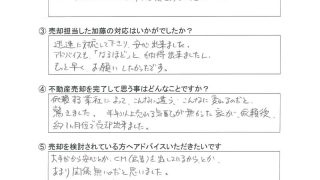 ③ 売却担当した加藤の対応はいかがでしたか?
迅速に対応して下さり、安心出来ました。
アドバイスも「なるほど」と納得出来ましたし、
もっと早くお願いしたかったです。
④ 不動産売却を完了して思う事はどんなことですか?
依頼する業社によって、こんなに違う、こんなに変わるのだと、
驚きました。 半年以上
無かった 依頼後、
約1ヶ月で売却出来ました。
⑤ 売却を検討されている方へアドバイスいただきたいです
大手だから安心とか、CM(広告)を出しているからとか、
あまり関係無いのだと思いました。